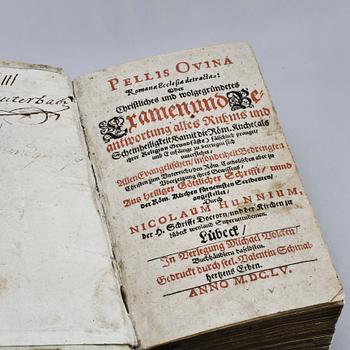 III
uterbach
PELLIS OVINA
Romanæ Ecclesiæ detracta:
Oder
Christliches und wolgegründetes
Examen und Be-
antwortung alles Ruhms und
Scheinheiligkeit / damit die Röm. Kirche / als
ihrer Religion Grundsäße / fälschlich prangen
und Einfältige zu
Allen Evangelischen / insonderheit Bedrengten
Christen zum Unterricht / den Röm. Catholischen aber zu
Uberzeugung ihres Gewissens /
Aus heiliger Göttlicher Schrifft / und
der Röm. Kirchen fürnemsten Scribenten /
angestellet /
Durch
NICOLAUM HUNNIUM,
der H. Schrifft Doctorn / und der Kirchen zu
Lübeck weyland Superintendenten.
Lübeck /
In Verlegung Michael Volcken
Buchhändlern daselbsten.
Gedruckt durch sel. Valentin Schmal-
hertzens Erben.
ANNO M. DC. LV.